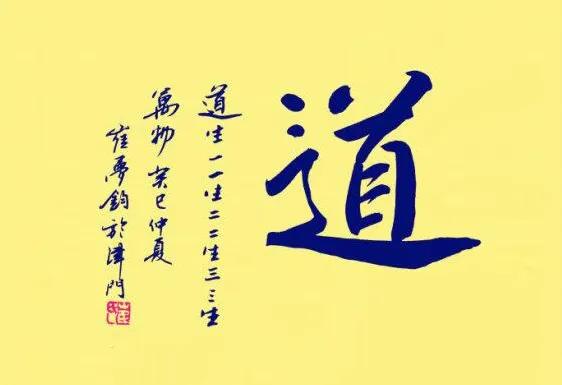 道
道生一一生二二生三三生
萬物 癸巳仲夏
崔勇鈞於津門